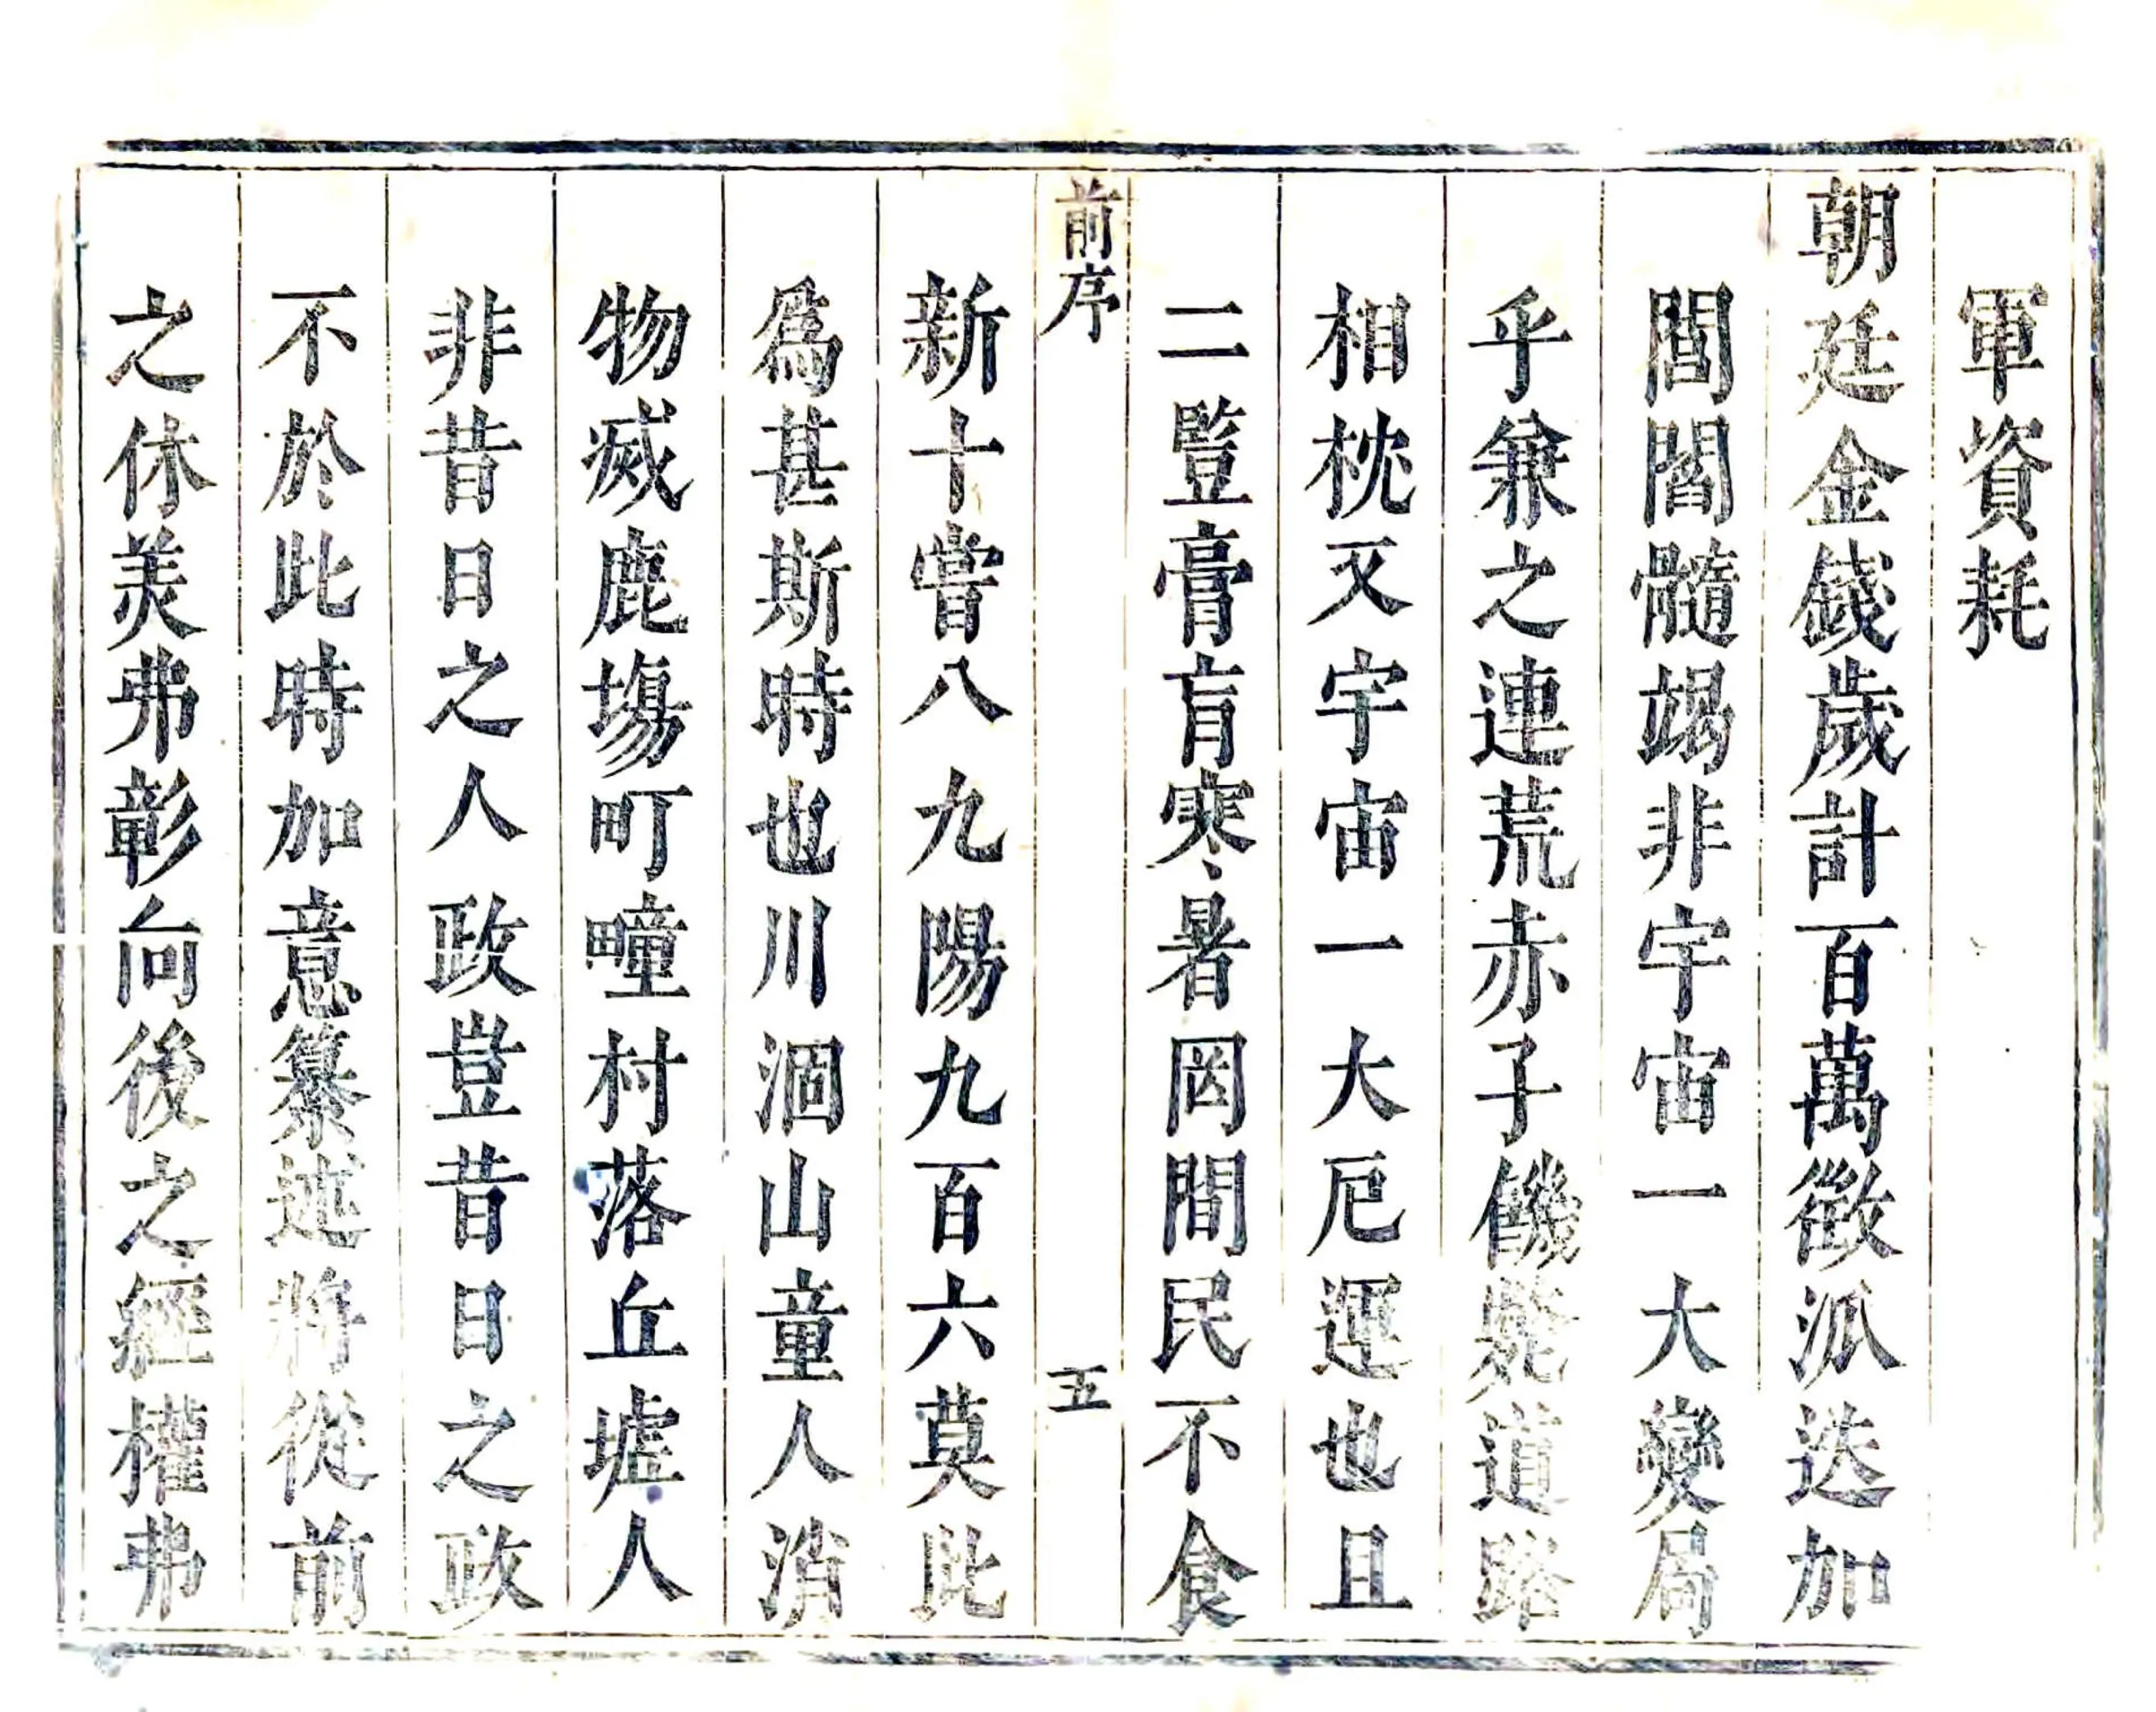 軍資耗
朝廷金錢歲計百萬徵派迭加
閭閻髓竭非宇宙一大變局
乎兼之連荒赤子饑斃道路
相枕又宇宙一大厄運也且
二豎膏肓寒暑罔間民不食
前序
五
新十嘗八九陽九百六莫此
爲甚斯時也川涸山童人消
物烕鹿塲町疃村落丘墟人
非昔日之人政豈昔日之政
不於此時加意纂述將從前
之休羙弗彰向後之經權弗